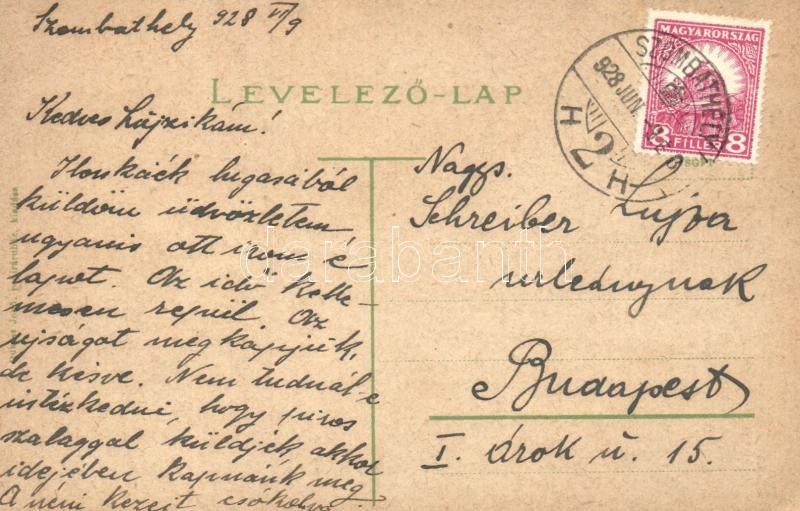 Szombathely 928 VI/9
LEVELEZŐ-LAP
Kedves Lujzikám!
Ilonkáék lugasából
küldöm üdvözletem,
ugyanis ott irom e
lapot. Az idő kelle-
mesen repül. Az
ujságot megkapjuk,
de késve. Nem tudnál-e
intézkedni, hogy piros
szalaggal küldjék akkor
idejében kapnánk meg.
A néni kezeit csókolva
MAGYARORSZÁG
8 FILLÉR 8
SZOMBATHELY
928 JUN.
H 2 H
Nagys.
Schreiber Lujza
urleánynak
Budapest
I. Árok u. 15.
darabanth.com